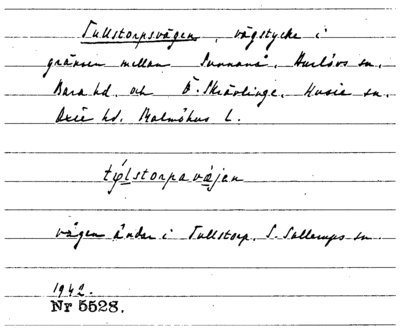 Tullstorpsvägen, vägstycke i
gränsen mellan Sunnanå, Burlövs sn.
Bara hd. och Ö. Skrävlinge, Husie sn.
Oxie hd. Malmöhus l.
vägen ändar i Tullstorp, S. Sallerups sn.
1942.
Nr 5528.